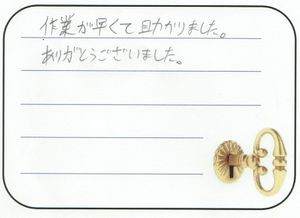 作業が早くて助かりました。
ありがとうございました。